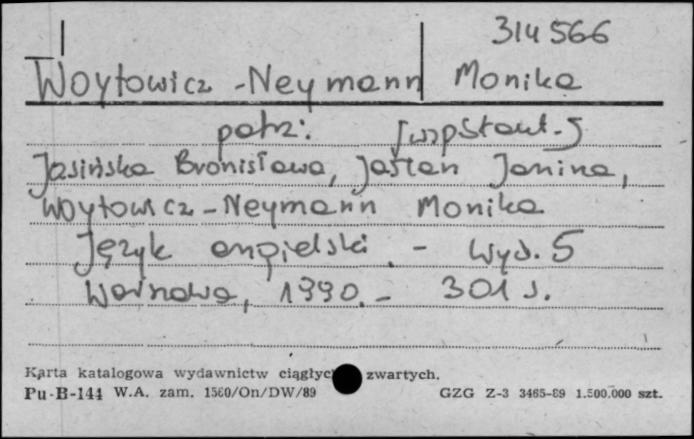 314566
Woytowicz-Neymann Monika
patrz: [współaut.]
Jasińska Bronisława, Jaślan Janina,
Woytowicz-Neymann Monika
Język angielski. - Wyd. 5
Warszawa, 1990. - 301 s.
Karta katalogowa wydawnictw ciągłyc zwartych.
Pu-B-144 W.A. zam. 1560/On/DW/89 GZG Z-3 3465-89 1.500.000 szt.